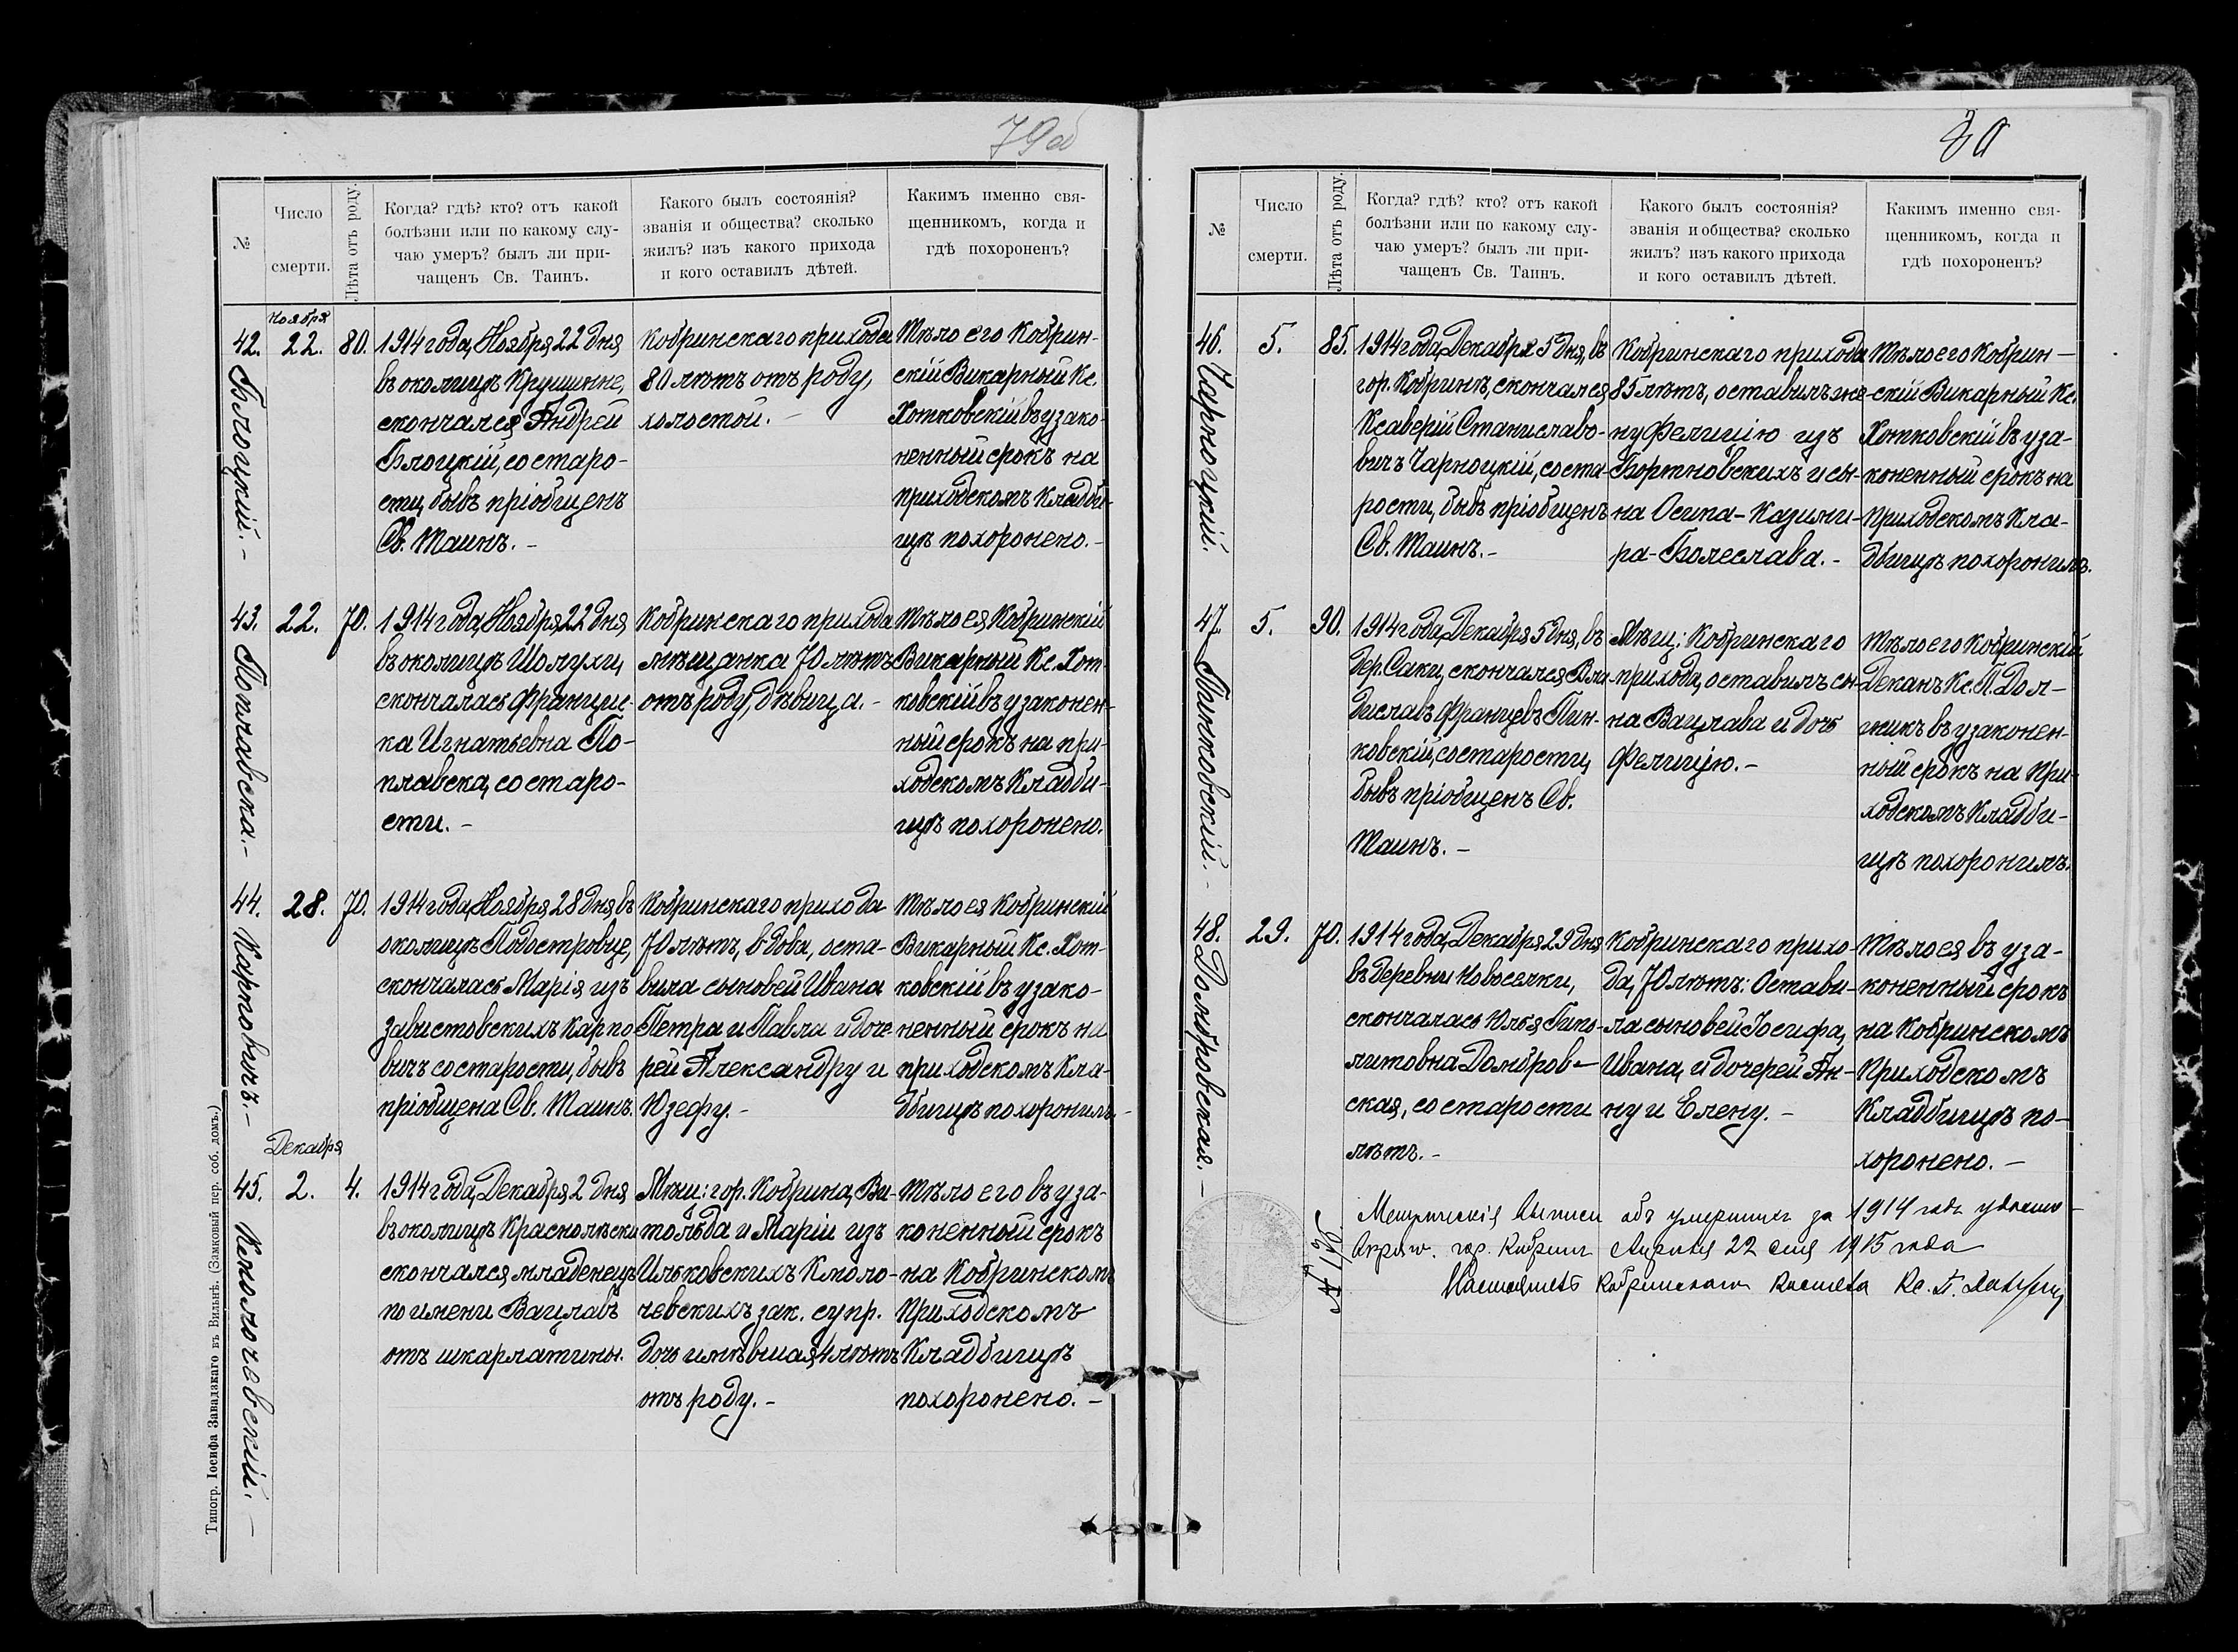 79 об
№
Число
смерти.
Лѣта отъ роду.
Когда? гдѣ? кто? отъ какой
болѣзни или по какому слу-
чаю умеръ? былъ ли при-
чащенъ Св. Таинъ.
Какого былъ состоянія?
званія и общества? сколько
жилъ? изъ какого прихода
и кого оставилъ дѣтей.
Какимъ именно свя-
щенникомъ, когда и
гдѣ похороненъ?
Ноября
42.
Блоцкій. -
22.
80.
1914 года, Ноября 22 дня
въ околицѣ Крушинне,
скончался Андрей
Блоцкій, со старо-
сти, бывъ пріобщенъ
Св. Таинъ. -
Кобринскаго прихода
80 лѣтъ отъ роду,
холостой. -
Тѣло его Кобрин-
скій Викарный Кс.
Хотковскій въ узако-
ненный срокъ на
приходскомъ Кладби-
щѣ похоронено. -
43.
Поплавска. -
22.
70.
1914 года, Ноября 22 дня
въ околицѣ Шолухи,
скончалась Францис-
ка Игнатьевна По-
плавска, со старо-
сти. -
Кобринскаго прихода
мѣщанка 70 лѣтъ
отъ роду, дѣвица. -
Тѣло ея Кобринскій
Викарный Кс. Хот-
ковскій въ узаконен-
ный срокъ на при-
ходскомъ Кладби-
щѣ похоронено.
44.
Карповичъ. -
28.
70.
1914 года, Ноября 28 дня, въ
околицѣ Подостровце,
скончалась Марія изъ
Завистовскихъ Карпо
вичъ со старости, бывъ
пріобщена Св. Таинъ.
Кобринскаго прихода
70 лѣтъ, вдова, оста-
вила сыновей Ивана
Петра и Павла и доче-
рей Александру и
Юзефу. -
Тѣло ея Кобринскій
Викарный Кс. Хот-
ковскій въ узако-
ненный срокъ на
приходскомъ Кла-
дбищѣ похоронилъ. -
Декабря
45.
Кмолочевскій. -
2.
4.
1914 года, Декабря 2 дня
въ околицѣ Краснолѣски
скончался младенецъ
по имени Вацлавъ
отъ шкарлатины.
Мѣщ: гор. Кобрина, Ви-
тольда и Маріи изъ
Ильковскихъ Кмоло-
чевскихъ зак. супр.
дочь имѣвшая 4 лѣтъ
отъ роду. -
Тѣло его въ уза-
коненный срокъ
на Кобринскомъ
Приходскомъ
Кладбищѣ
похоронено. -
Типогр. Іосифа Завадзкаго въ Вильнѣ. (Замковый пер. соб. домъ.)
80
№
Число
смерти.
Лѣта отъ роду.
Когда? гдѣ? кто? отъ какой
болѣзни или по какому слу-
чаю умеръ? былъ ли при-
чащенъ Св. Таинъ.
Какого былъ состоянія?
званія и общества? сколько
жилъ? изъ какого прихода
и кого оставилъ дѣтей.
Какимъ именно свя-
щенникомъ, когда и
гдѣ похороненъ?
46.
Чарноцкій.
5.
85.
1914 года, Декабря 5 дня, въ
гор. Кобринѣ, скончался
Ксаверій Станиславо-
вичъ Чарноцкій, со ста-
рости, бывъ пріобщенъ
Св. Таинъ. -
Кобринскаго прихода
85 лѣтъ, оставилъ же-
ну Фелицію изъ
Бортновскихъ и сы-
на Осипа-Казими-
ра-Болеслава. -
Тѣло его Кобрин-
скій Викарный Кс.
Хотковскій въ уза-
коненный срокъ на
Приходскомъ Кла-
дбищѣ похоронилъ.
47.
Пинковскій. -
5.
90.
1914 года, Декабря 5 дня, въ
дер. Саки, скончался Вла-
диславъ Францевъ Пин-
ковскій, со старости,
бывъ пріобщенъ Св.
Таинъ. -
Мѣщ: Кобринскаго
прихода, оставилъ сы-
на Вацлава и дочь
Фелицію. -
Тѣло его Кобринскій
Деканъ Кс. П. Дол-
жикъ въ узаконен-
ный срокъ на При-
ходскомъ Кладби-
щѣ похоронилъ.
48.
Домбровская. -
29.
70.
1914 года, Декабря 29 дня
въ деревни Новоселки,
скончалась Юлья Гипо-
литовна Домбров-
ская, со старости
лѣтъ. -
Кобринскаго прихо-
да, 70 лѣтъ: Остави-
ла сыновей Іосифа,
Ивана, и дочерей Ан-
ну и Елену. -
Тѣло ея въ уза-
коненный срокъ
на Кобринскомъ
Приходскомъ
Кладбищѣ по-
хоронено. -
Метрическія Выписи объ умершихъ за 1914 годъ
гор. Кобринъ Апрѣля 22 дня 1915 года
Настоятель Кобринскаго Костела Кс. П.